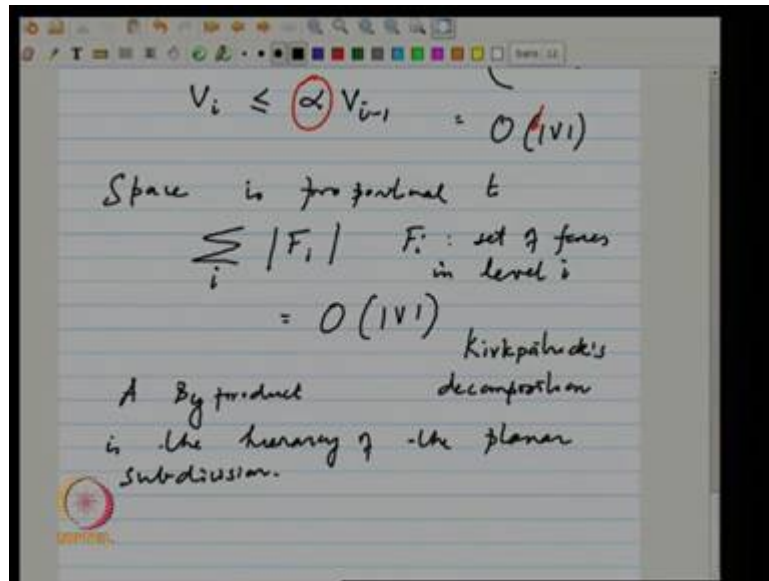 Vᵢ ≤ α Vᵢ₋₁ = O(|V|)
Space is proportional t
Σᵢ |Fᵢ| Fᵢ : set of faces
in level i
= O(|V|)
Kirkpatrick's
A By product decomposition
is the hierarchy of the planar
subdivision.
NPTEL